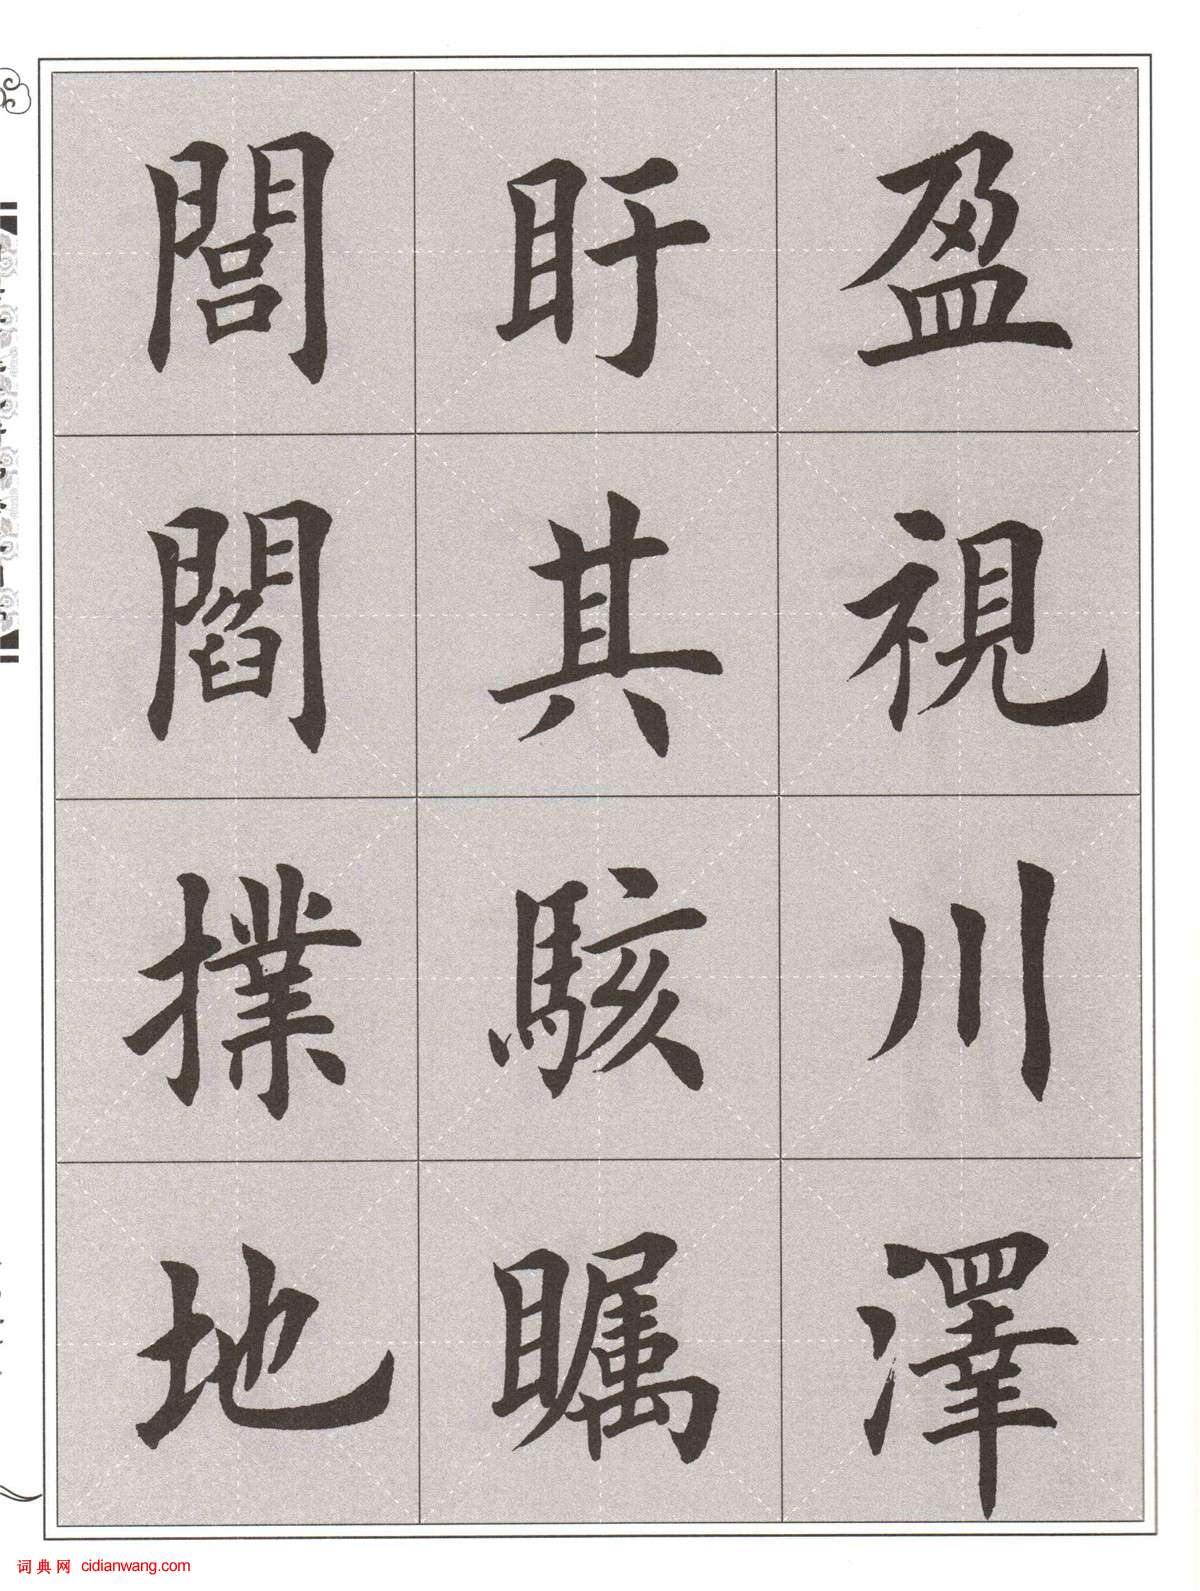 盈視川澤
盱其駭矚
閭閻撲地
词典网 cidianwang.com